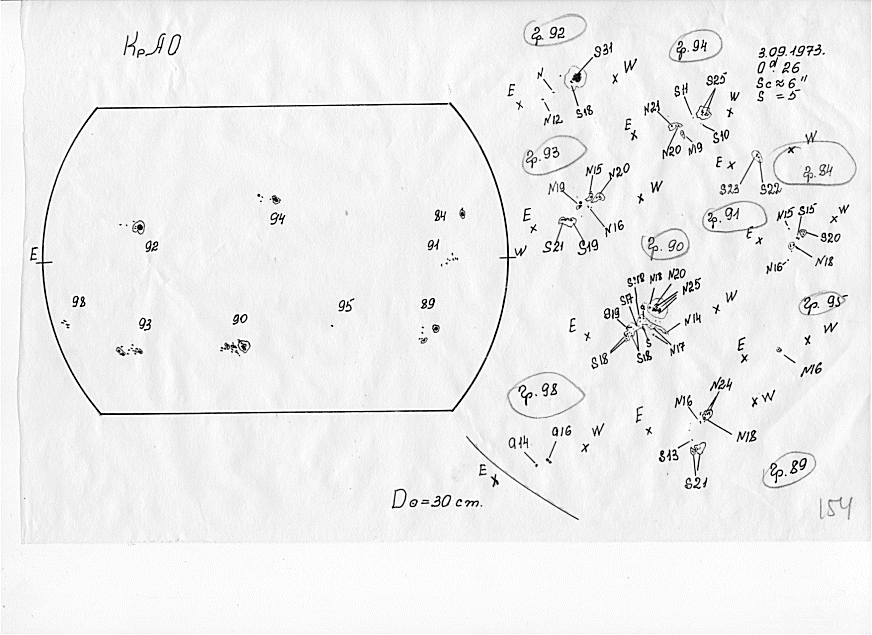 КрАО
3.09.1973.
0ᵈ. 26
Sc ≈ 6"
S = 5
E
W
92
94
84
91
98
93
90
95
89
D⊙ = 30 cm.
гр. 92
S31
N
E
W
N12
S18
гр. 94
S11
S25
N21
W
E
N20
N19
S10
гр. 93
N15
N20
N19
W
E
N16
S21
S19
гр. 84
W
E
S23
S22
гр. 91
N15
S15
W
E
S20
N16
N18
гр. 90
S18
N18
N20
N25
S17
W
E
N14
S18
S18
S
N17
гр. 95
W
E
N16
гр. 98
a14
a16
W
E
гр. 89
N24
N16
W
E
N18
S13
S21
154